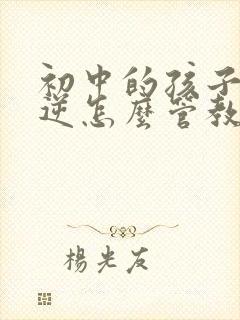 初中的孩子
逆怎麼管教
楊光友